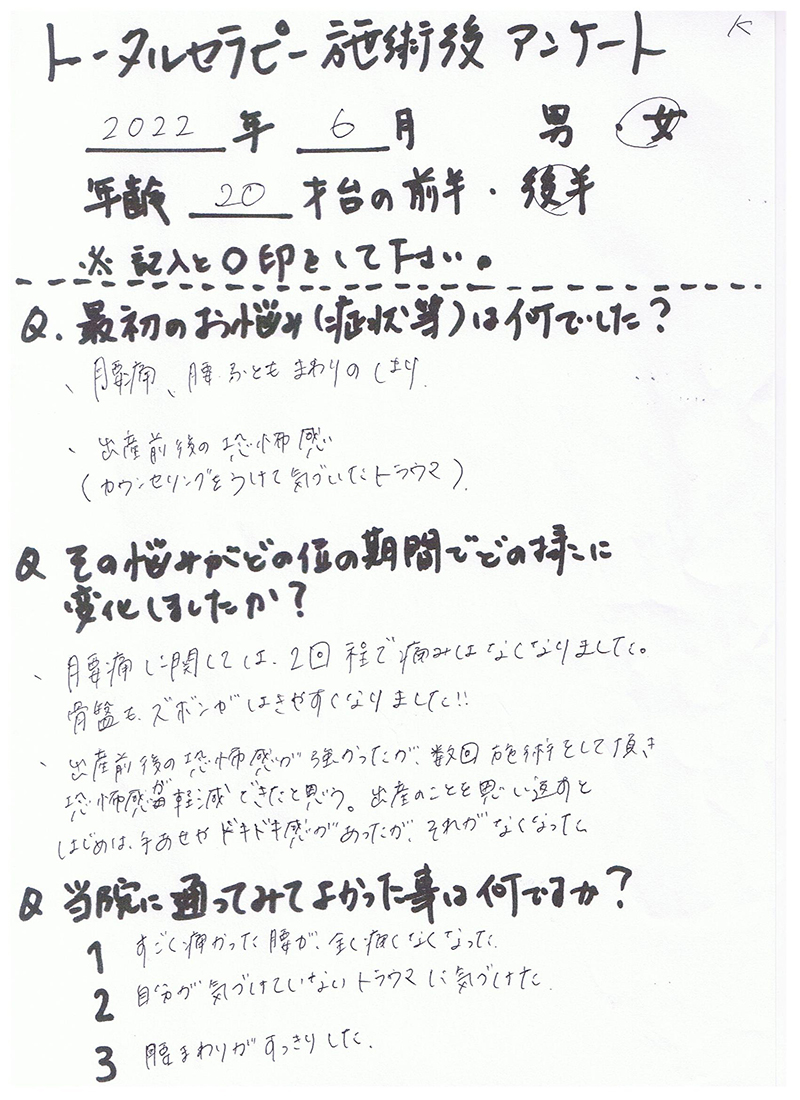 K
トータルセラピー施術後 アンケート
2022 年 6 月 男・女
年齢 20 才台の前半・後半
※ 記入と〇印をして下さい。
Q. 最初のお悩み(症状等)は何でしたか?
、腰痛、腰・ふともまわりのしまり
、出産前後の恐怖感
(カウンセリングをうけて気づいたトラウマ).
Q その悩みがどの位の期間でどの様に
変化しましたか?
、腰痛に関しては、2回程で痛みはなくなりました。
骨盤も、ズボンがはきやすくなりました!!
、出産前後の恐怖感が強かったが、数回施術をして頂き
恐怖感が軽減できたと思う。出産のことを思い返すと
はじめは、手あせやドキドキ感があったが、それがなくなった
Q 当院に通ってみてよかった事は何ですか?
1 すごく痛かった腰が、全く痛くなくなった.
2 自分が気づけていないトラウマに気づけた.
3 腰まわりがすっきりした.